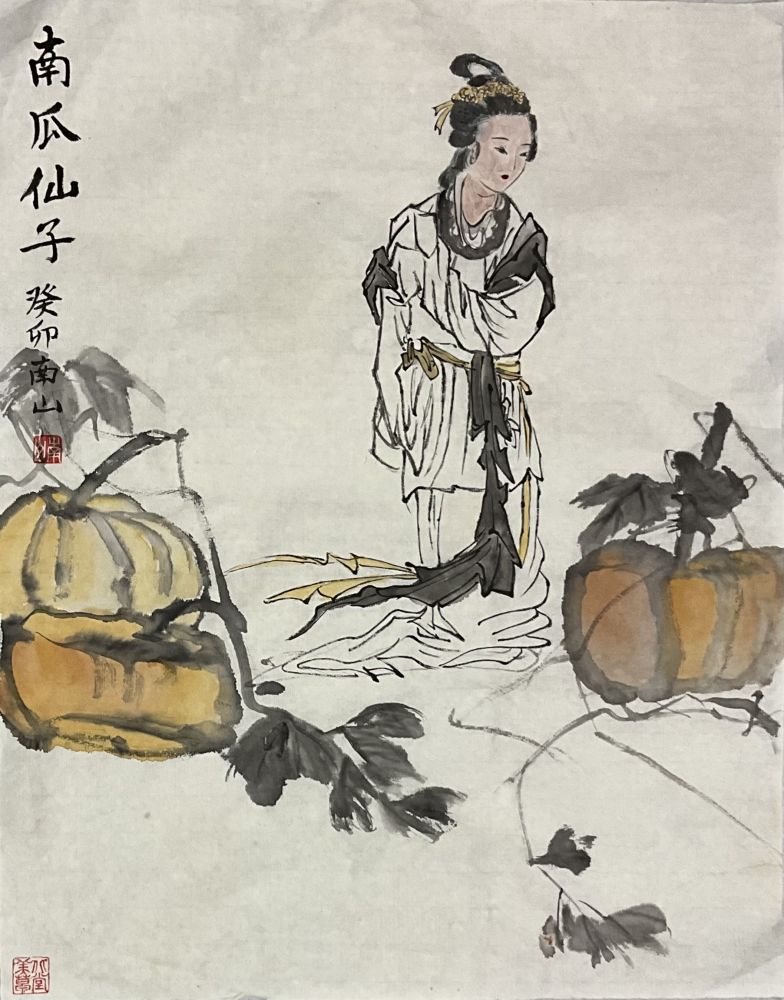 南瓜仙子
癸卯南山